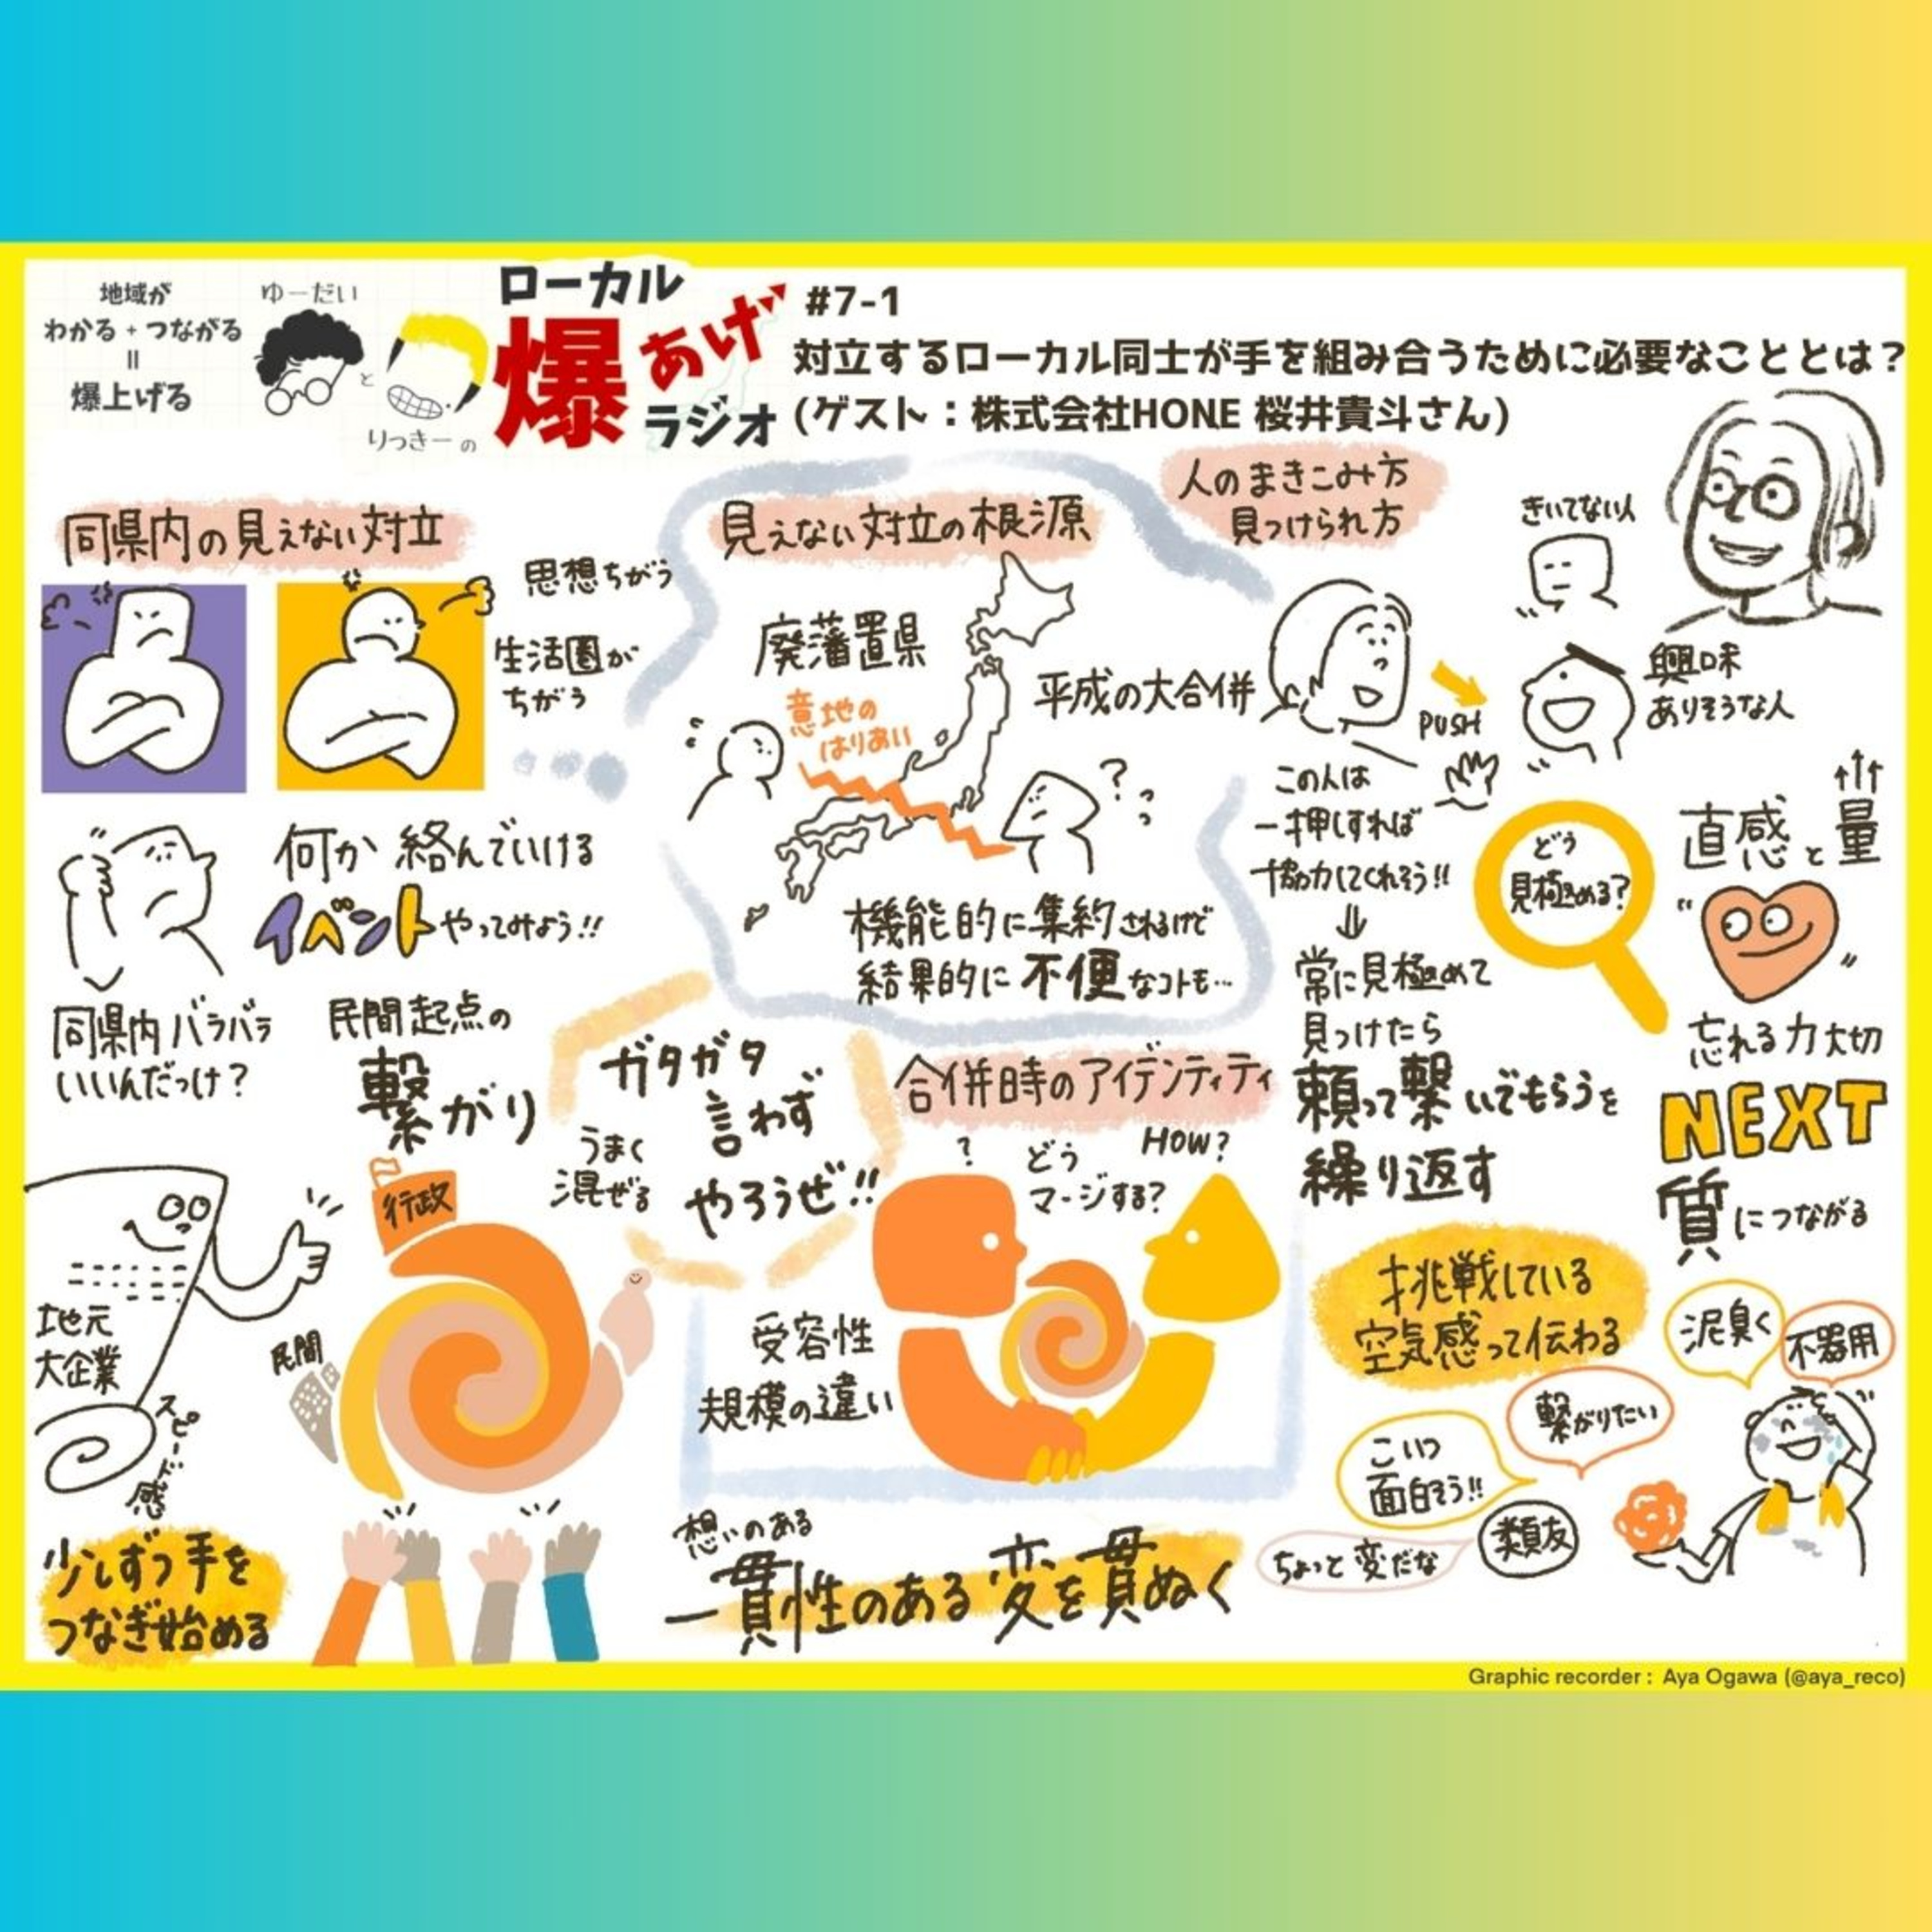 地域が
わかる + つながる
=
爆上げる
ゆーだい
と
りっきーの
ローカル
爆あげ
ラジオ
#7-1
対立するローカル同士が手を組み合うために必要なこととは?
(ゲスト:株式会社HONE 桜井貴斗さん)
同県内の見えない対立
思想ちがう
生活圏が
ちがう
何か絡んでいける
イベントやってみよう!!
同県内バラバラ
いいんだっけ?
民間起点の
繋がり
ガタガタ
言わず
うまく
混ぜる
やろうぜ!!
行政
民間
地元
大企業
スピード感
少しずつ手を
つなぎ始める
見えない対立の根源
廃藩置県
平成の大合併
意地の
はりあい
?
機能的に集約されるけど
結果的に不便なコトも…
合併時のアイデンティティ
?
どう
マージする?
HOW?
受容性
規模の違い
想いのある
一貫性のある変を貫ぬく
人のまきこみ方
見つけられ方
きいてない人
興味
ありそうな人
PUSH
この人は
一押しすれば
協力してくれそう!!
⇓
常に見極めて
見つけたら
頼って繋いでもらうを
繰り返す
どう
見極める?
直感と量
↑↑↑
忘れる力大切
NEXT
質につながる
挑戦している
空気感って伝わる
泥臭く
不器用
繋がりたい
こいつ
面白そう!!
類友
ちょっと変だな
Graphic recorder : Aya Ogawa (@aya_reco)